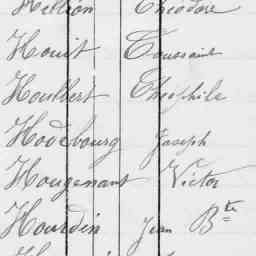 Hellion Théodore
Houit Toussaint
Houlbert Théophile
Hodebourg Joseph
Hougenant Victor
Hourdin Jean Bte